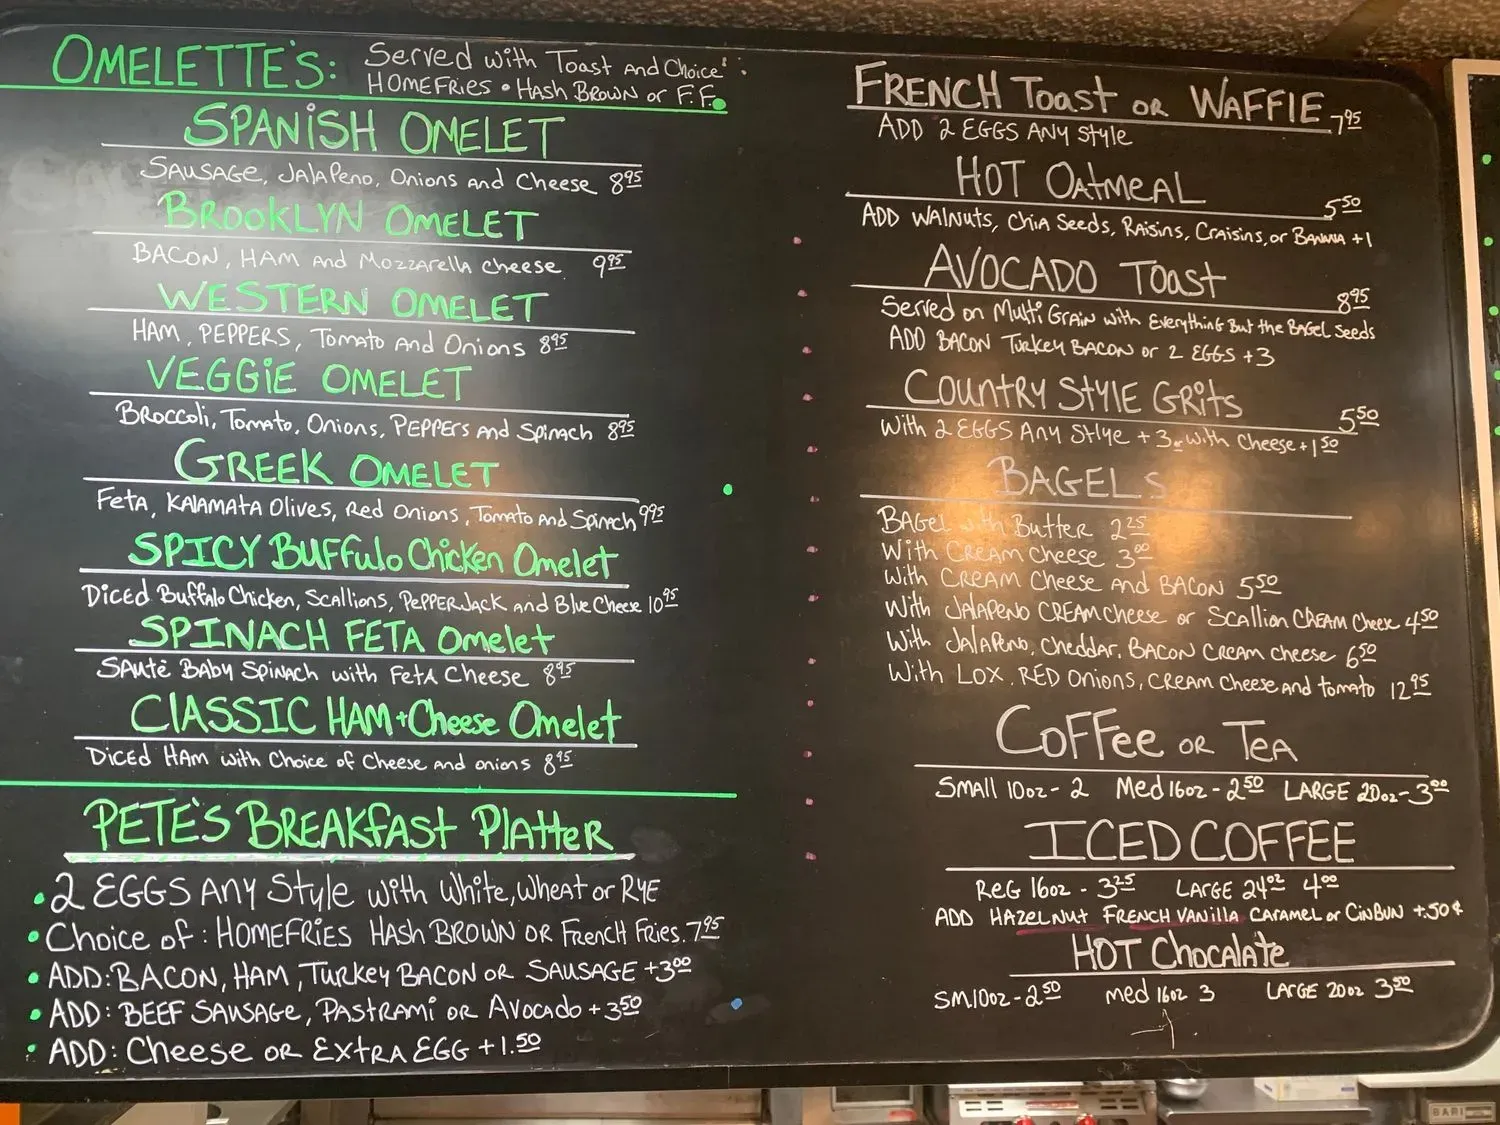 OMELETTE'S: Served with Toast and Choice:
HOMEFRIES • HASH BROWN or F.F.
SPANISH OMELET
SAUSAGE, JALAPENO, ONIONS and CHEESE 8.95
BROOKLYN OMELET
BACON, HAM and MOZZARELLA CHEESE 9.95
WESTERN OMELET
HAM, PEPPERS, TOMATO AND ONIONS 8.95
VEGGIE OMELET
BROCCOLI, TOMATO, ONIONS, PEPPERS AND SPINACH 8.95
GREEK OMELET
FETA, KALAMATA OLIVES, RED ONIONS, TOMATO AND SPINACH 9.95
SPICY BUFFULO CHICKEN OMELET
DICED BUFFALO CHICKEN, SCALLIONS, PEPPERJACK AND BLUE CHEESE 10.95
SPINACH FETA Omelet
SAUTÉ BABY SPINACH WITH FETA CHEESE 8.95
CLASSIC HAM + Cheese Omelet
DICED HAM with Choice of Cheese and onions 8.95
PETE'S BREAKFAST PLATTER
• 2 EGGS ANY Style with White, Wheat or RYE
• Choice of: HOMEFRIES HASH BROWN OR FRENCH FRIES. 7.95
• ADD: BACON, HAM, TURKEY BACON OR SAUSAGE +3.00
• ADD: BEEF SAUSAGE, PASTRAMI OR AVOCADO +3.50
• ADD: Cheese OR EXTRA EGG +1.50
FRENCH Toast OR WAFFIE 7.95
ADD 2 EGGS ANY STYLE
HOT OATMEAL 5.50
ADD WALNUTS, CHIA SEEDS, RAISINS, CRAISINS, or BANANA +1
AVOCADO Toast 8.95
Served on MULTI GRAIN with Everything But the BAGEL Seeds
ADD BACON TURKEY BACON OR 2 EGGS +3
COUNTRY STYLE GRITS 5.50
With 2 EGGS ANY STYLE +3 or with CHEESE +1.50
BAGELS
BAGEL with BUTTER 2.25
With CREAM CHEESE 3.00
With CREAM CHEESE AND BACON 5.50
With JALAPENO CREAM CHEESE or SCALLION CREAM CHEESE 4.50
With JALAPENO, CHEDDAR, BACON CREAM CHEESE 6.50
With LOX, RED ONIONS, CREAM CHEESE AND TOMATO 12.95
COFFEE OR TEA
SMALL 10oz - 2 Med 16oz - 2.50 LARGE 20oz - 3.00
ICED COFFEE
REG 16oz - 3.25 LARGE 24oz 4.00
ADD HAZELNUT FRENCH VANILLA CARAMEL or CINBUN +.50¢
HOT CHOCALATE
SM.10oz - 2.50 med 16oz 3 LARGE 20oz 3.50
BARI